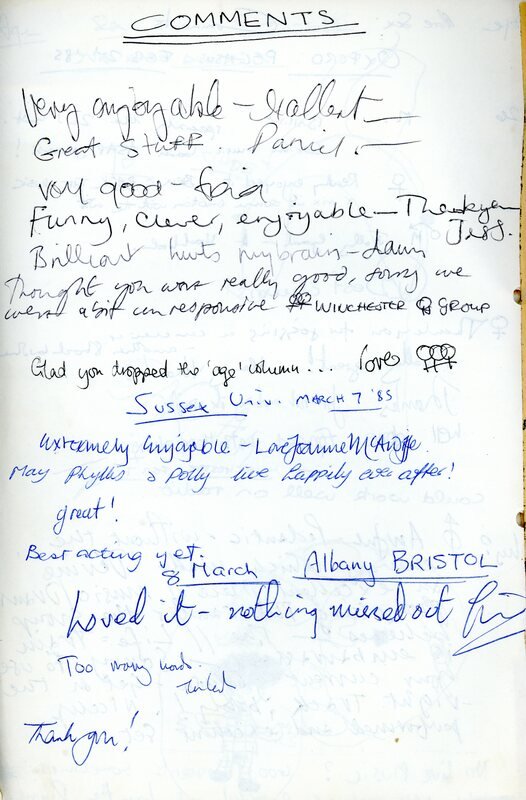 COMMENTS
Very enjoyable - Exellent
Great Stuff.
very good -
Funny, Clever, enjoyable - Thankyou
Jess.
Brilliant hurts my brain - Dawn
Thought you were really good, sorry we
were a bit unresponsive WINCHESTER GROUP
Glad you dropped the 'age' column... love
Sussex Univ. MARCH 7 '85
Extremely Enjoyable - Love Joanne
May Phyllis & Polly live happily ever after!
great!
Best acting yet.
8 March Albany BRISTOL
Loved it - nothing missed out
Too many words.
Thank you!